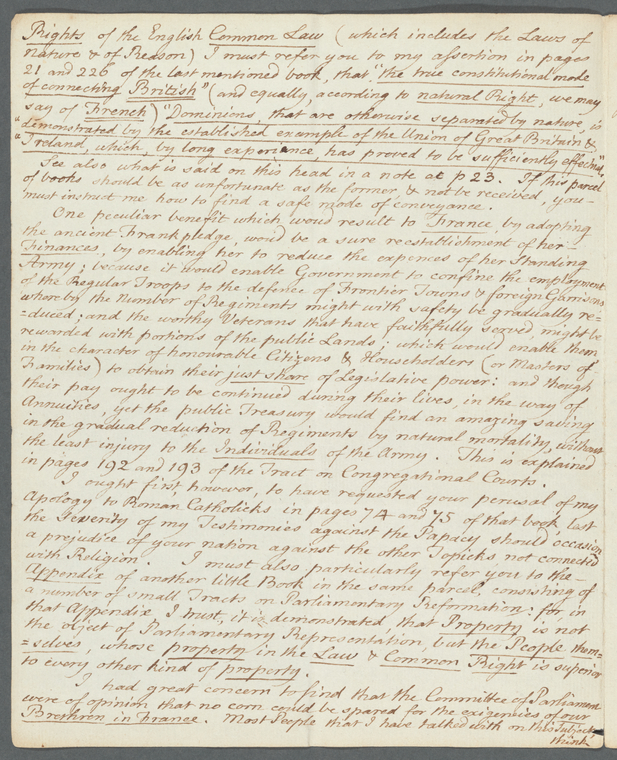 Rights of the English Common Law (which includes the Laws of
nature & of Reason) I must refer you to my assertion in pages
21 and 226 of the last mentioned book, that "the true constitutional mode
of connecting British" (and equally, according to natural Right, we may
say of French) "Dominions, that are otherwise separated by nature, is
"demonstrated by the established example of the Union of Great Britain &
"Ireland, which, by long experience has proved to be sufficiently effectual"
See also what is said on this head in a note at p 23. If this parcel
of books should be as unfortunate as the former, & not be received, you
must instruct me how to find a safe mode of conveyance.
One peculiar benefit which would result to France, by adopting
the ancient Frankpledge, would be a sure reestablishment of her
Finances, by enabling her to reduce the expences of her Standing
Army; because it would enable Government to confine the employment
of the Regular Troops to the defence of Frontier Towns & foreign Garrisons
whereby the Number of Regiments might with safety be gradually re=
=duced; and the worthy Veterans that have faithfully served, might be
rewarded with portions of the public Lands; which would enable them
in the character of honourable Citizens & Householders (or Masters of
Families) to obtain their just share of Legislative power: and though
their pay ought to be continued during their lives, in the way of
Annuities, yet the public Treasury would find an amazing saving
in the gradual reduction of Regiments by natural mortality, without
the least injury to the Individuals of the Army. This is explained
in pages 192 and 193 of the Tract on Congregational Courts.
I ought first, however, to have requested your perusal of my
Apology to Roman Catholicks in pages 74 and 75 of that book, lest
the Severity of my Testimonies against the Papacy should occasion
a prejudice of your nation against the other Topicks not connected
with Religion. I must also particularly refer you to the
Appendix of another little Book in the same parcel, consisting of
a number of small Tracts on Parliamentary Reformation: for, in
that Appendix, I trust, it is demonstrated that Property is not
the object of Parliamentary Representation, but the People them=
=selves, whose property in the Law & Common Right is superior
to every other kind of property.
I had great concern to find that the Committee of Parliament
were of opinion that no corn could be spared for the exigencies of our
Brethren in France. Most People that I have talked with on this Subject,
think